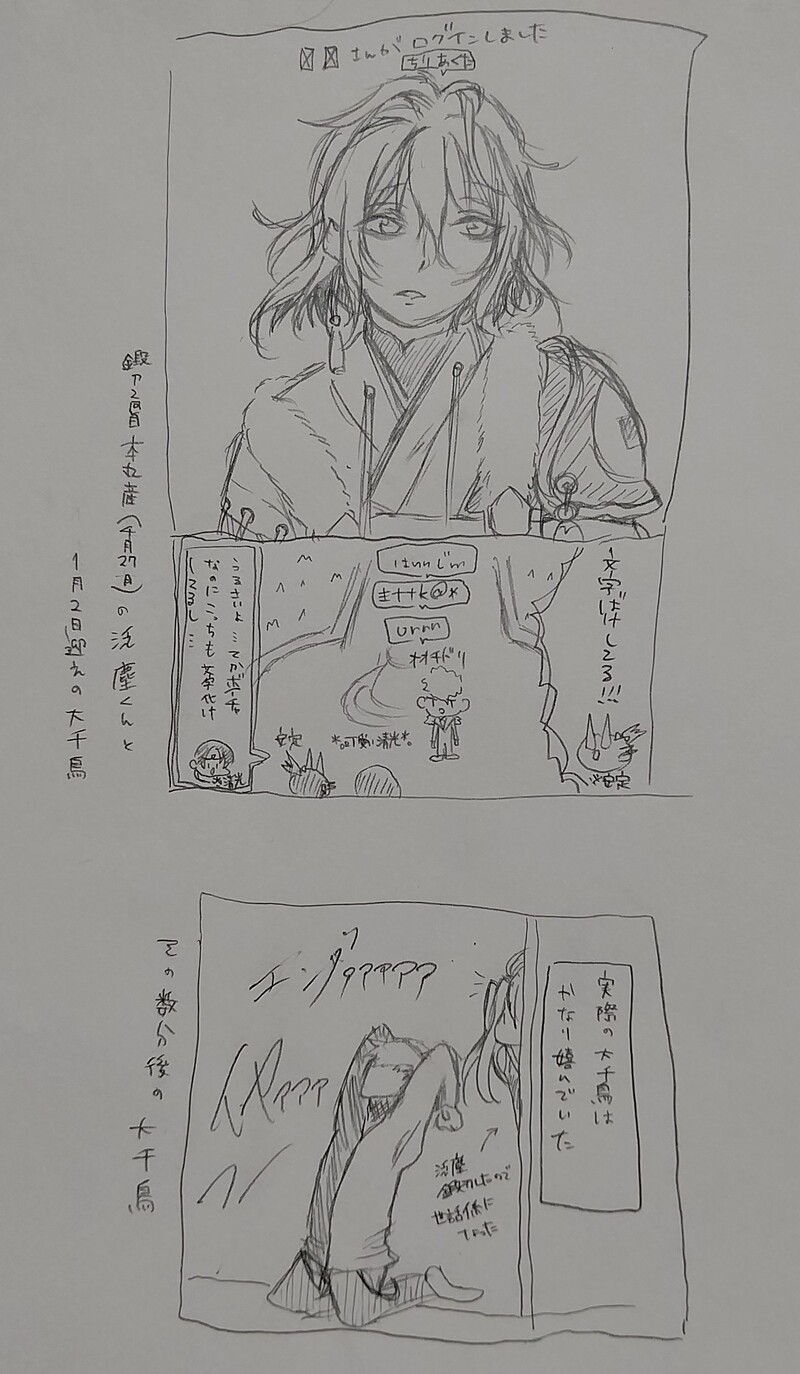 ☒☒さんがログインしました
ちりあくた
鍛刀2回目本丸産(4月27日)の泛塵くんと
1月2日迎えの大千鳥
文字ばけしてる!!!
※安定
オオチドリ
安定
*。可愛い清光*。
うるさいよ…てかボイチャ
なのにこっちも文字化け
してるし…
※清光
実際の大千鳥は
かなり喜んでいた
エンダァァァァァ
イヤァァァ
泛塵
鍛刀したので
世話係に
なった
その数分後の大千鳥